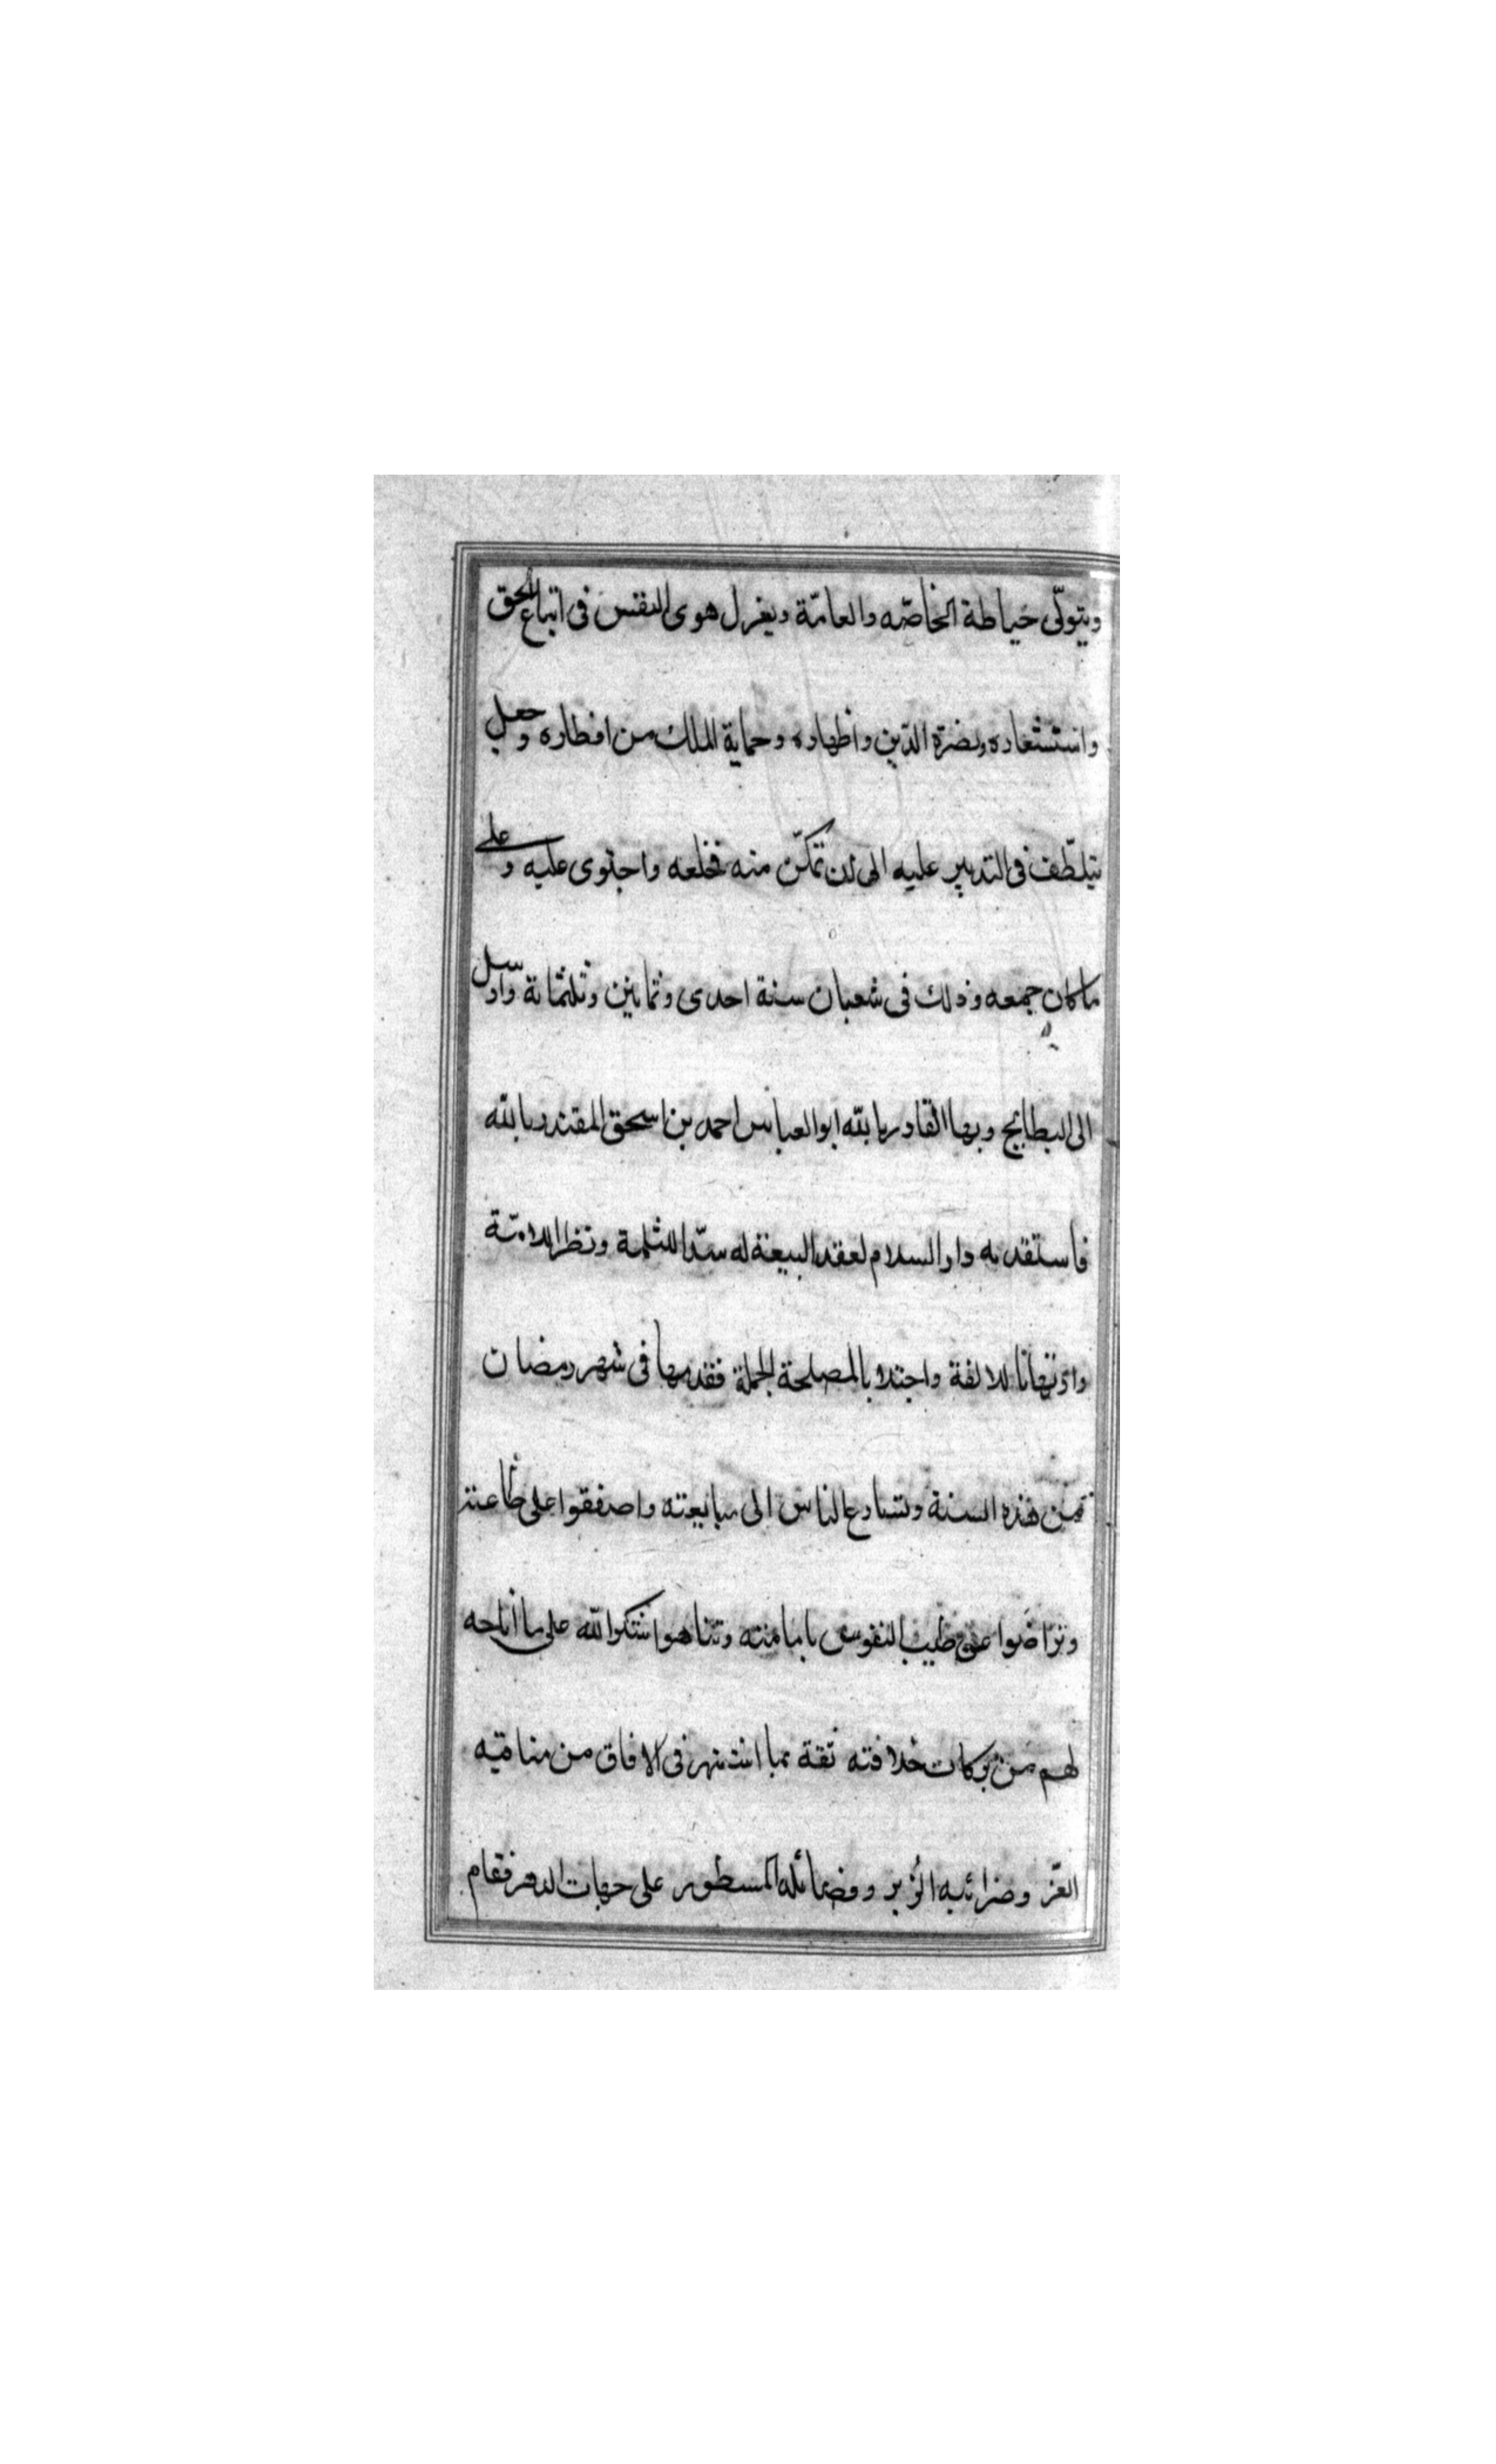 ويتولّى حياطة الخاصّه والعامّة ويغزل هوى النفس فى اتباع الحق
واستشعاره ونصرة الدّين واظهاره وحماية الملك من اقطاره وجعل
يتلطّف فى التدبير عليه الى ان تمكّن منه فخلعه واحتوى عليه وعلى
ما كان جمعه وذلك فى شعبان سنة احدى وثمانين وثلثمائة وارسل
الى البطايح وبها القادر بالله ابو العباس احمد بن اسحق المقتدر بالله
فاستقدمه دار السلام لعقد البيعة له سدّا للثلمة ونظرا للامّة
وارتهانا للالفة واجتلابا لمصلحة الجملة فقدمها فى شهر رمضان
من هذه السنة وتسارع الناس الى مبايعته واصفقوا على طاعته
وتراضوا عن طيب النفوس بامامته وتناهوا شكرا لله على ما اتاحه
لهم من بركات خلافته ثقة بما اشتهر فى الافاق من مناقبه
الغرّ وضرائبه الزهر وفضائله المسطور على جبهات الدهر فقام